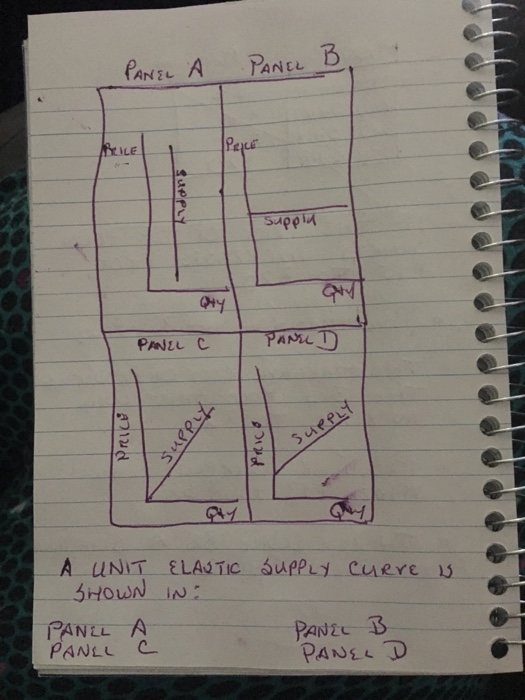 PANEL A PANEL B
PRICE PRICE
SUPPLY
SUPPLY
Qty Qty
PANEL C PANEL D
PRICE SUPPLY PRICE SUPPLY
Qty Qty
A UNIT ELASTIC SUPPLY CURVE IS
SHOWN IN:
PANEL A PANEL B
PANEL C PANEL D